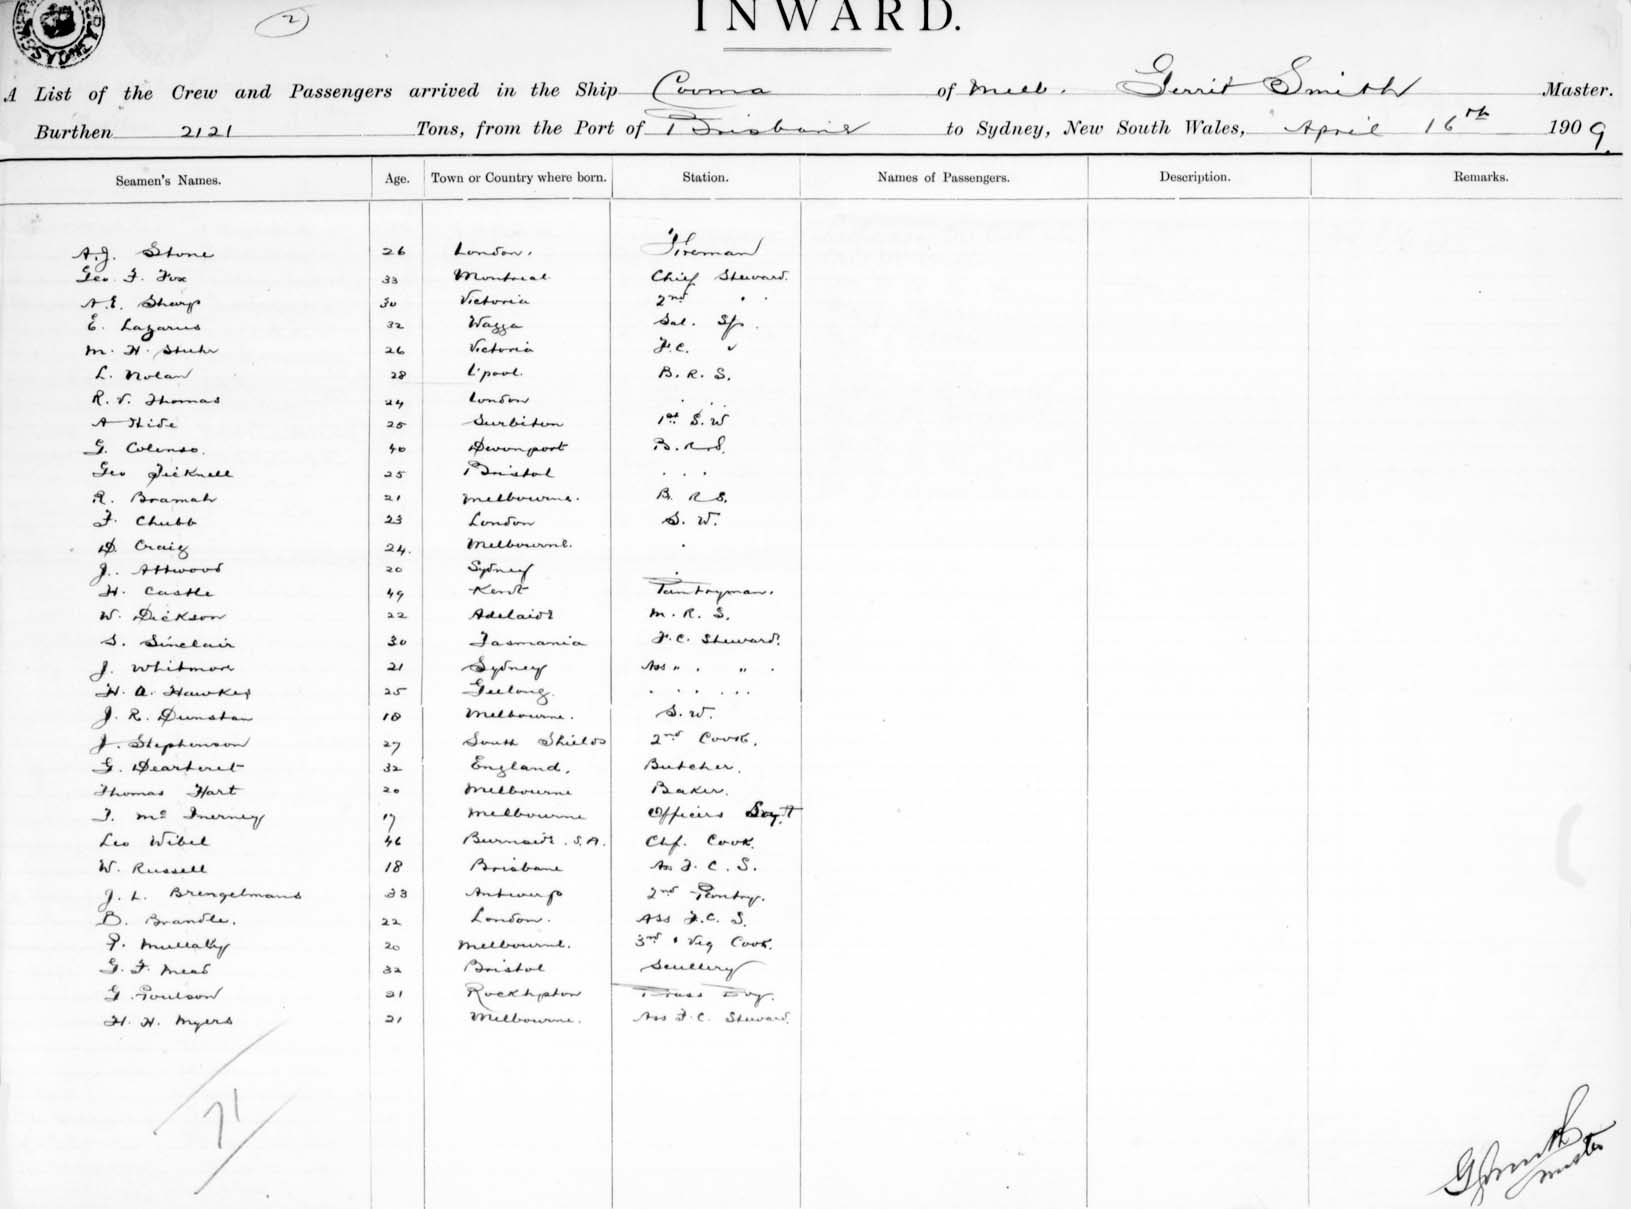 2
INWARD.
A List of the Crew and Passengers arrived in the Ship Cooma of Melb. Gerrit Smith Master.
Burthen 2121 Tons, from the Port of Brisbane to Sydney, New South Wales, April 16th 1909.
Seamen's Names. Age. Town or Country where born. Station. Names of Passengers. Description. Remarks.
A.J. Stone 26 London. Fireman
Geo. F. Fox 33 Montreal Chief Steward.
A.E. Sharp 30 Victoria 2nd " "
E. Lazarus 32 Wagga Sal. Sp.
M. H. Stuhr 26 Victoria F.C. "
L. Nolan 28 L'pool B. R. S.
R. V. Thomas 24 London . . .
A Hide 25 Surbiton 1st S.W
G. Colenso. 40 Devonport B.R.S.
Geo Ticknell 25 Bristol . . .
R. Bramah 21 Melbourne. B. R S.
F. Chubb 23 London S. W.
D. Craig 24. Melbourne. .
J. Attwood 20 Sydney .
H. Castle 49 Kent Pantryman.
W. Dickson 22 Adelaide M. R. S.
S. Sinclair 30 Tasmania F.C. Steward.
J. Whitmore 21 Sydney Ass " . " .
H. A. Hawkes 25 Geelong. . . . . . .
J. R. Dunstan 18 Melbourne. S.W.
J. Stephenson 27 South Shields 2nd Cook.
G. 32 England. Butcher.
Thomas Hart 20 Melbourne Baker.
T. Mc Inerney 17 Melbourne Officers
Leo Wibel 46 S.A. Chf. Cook.
W. Russell 18 Brisbane Ass F. C. S.
J. L. Brengelmans 33 Antwerp 2nd Pantry.
B. Brandle. 22 London. Ass F.C. S.
P. Mullaly 20 Melbourne. 3rd & Veg Cook.
G. F. Mead 32 Bristol Scullery
G. Poulson 21 Rockhpton Brass Boy.
H. H. Myers 21 Melbourne. Ass F.C. Steward.
71
G Smith
Master